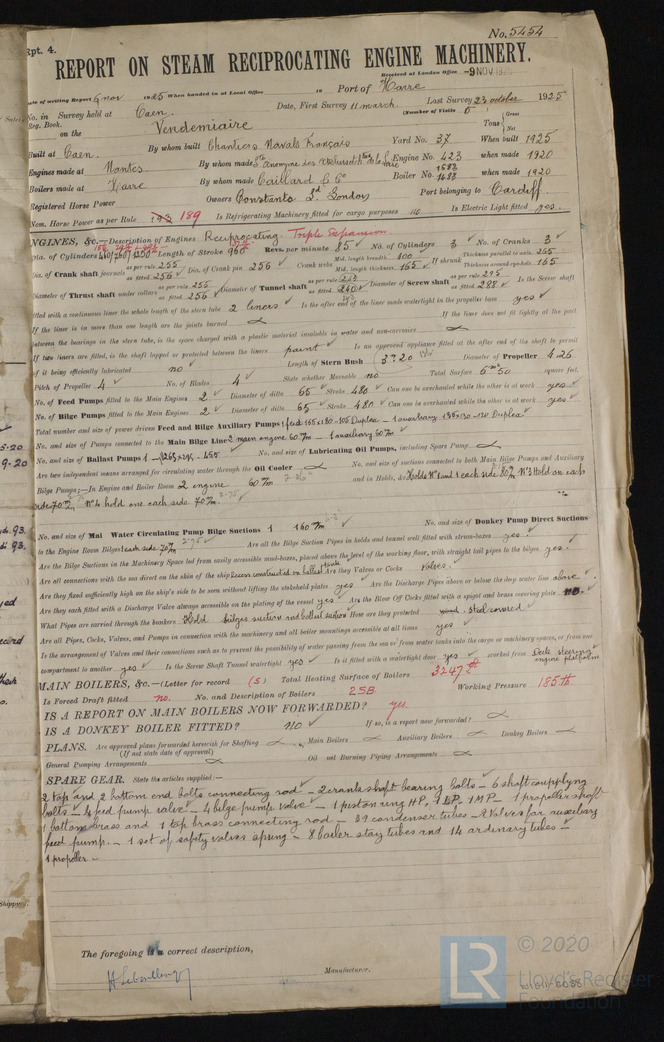 No. 5454
Rpt. 4.
REPORT ON STEAM RECIPROCATING ENGINE MACHINERY.
Received at London Office -9 NOV
Date of writing Report 6 nov 1925 When handed in at Local Office Port of Havre
No. in Reg. Book. Survey held at Caen. Date, First Survey 11 march Last Survey 23 october 1925
(Number of Visits
on the Vendemiaire Tons Gross Net
Built at Caen. By whom built Chantiers Navals Français Yard No. 37 When built 1925
Engines made at Nantes By whom made Engine No. 423 when made 1920
Boilers made at Havre By whom made Caillard & Co Boiler No. 1682 1683 when made 1920
Registered Horse Power Owners Constants Ld. London Port belonging to Cardiff.
Nom. Horse Power as per Rule 193 189 Is Refrigerating Machinery fitted for cargo purposes no Is Electric Light fitted yes.
ENGINES, &c.—Description of Engines Reciprocating Triple Expansion
Dia. of Cylinders 440/760/1250 Length of Stroke 960 Revs. per minute 85 No. of Cylinders 3 No. of Cranks 3
Dia. of Crank shaft journals as per rule 255 as fitted 256 Dia. of Crank pin 256 Crank webs Mid. length breadth 400 Mid. length thickness 165 If shrunk Thickness parallel to axis 165 Thickness around eyehole 165
Diameter of Thrust shaft under collars as per rule 255 as fitted 256 Diameter of Tunnel shaft as per rule 243 as fitted 240 Diameter of Screw shaft as per rule 275 as fitted 288 Is the Screw shaft
fitted with a continuous liner the whole length of the stern tube 2 liners Is the after end of the liner made watertight in the propeller boss yes
If the liner is in more than one length are the joints burned If the liner does not fit tightly at the part
between the bearings in the stern tube, is the space charged with a plastic material insoluble in water and non-corrosive
If two liners are fitted, is the shaft lapped or protected between the liners paint Is an approved appliance fitted at the after end of the shaft to permit
of it being efficiently lubricated no Length of Stern Bush Diameter of Propeller 4 26
Pitch of Propeller 4 No. of Blades 4 State whether Moveable no Total Surface square feet.
No. of Feed Pumps fitted to the Main Engines 2 Diameter of ditto 65 Stroke 480 Can one be overhauled while the other is at work yes
No. of Bilge Pumps fitted to the Main Engines 2 Diameter of ditto 65 Stroke 480 Can one be overhauled while the other is at work yes
Total number and size of power driven Feed and Bilge Auxiliary Pumps 1 feed 165x180-105 Duplex - 1 auxiliary 135x130-120 Duplex
No. and size of Pumps connected to the Main Bilge Line 2 main engine 60 7m - 1 auxiliary 60 7m
No. and size of Ballast Pumps No. and size of Lubricating Oil Pumps, including Spare Pump
Are two independent means arranged for circulating water through the Oil Cooler No. and size of suctions connected to both Main Bilge Pumps and Auxiliary
Bilge Pumps;—In Engine and Boiler Room 2 engine 60 7m and in Holds, &c. Holds No 1 and 1 each side 80 7m No 3 Hold on each
side 70 7m No 4 hold one each side 70 7m
No. and size of Main Water Circulating Pump Bilge Suctions 1 160 7m No. and size of Donkey Pump Direct Suctions
to the Engine Room Bilges 1 each side 70 7m Are all the Bilge Suction Pipes in holds and tunnel well fitted with strum-boxes yes.
Are the Bilge Suctions in the Machinery Space led from easily accessible mud-boxes, placed above the level of the working floor, with straight tail pipes to the bilges yes.
Are all connections with the sea direct on the skin of the ship Are they Valves or Cocks Valves.
Are they fixed sufficiently high on the ship's side to be seen without lifting the stokehold plates yes Are the Discharge Pipes above or below the deep water line above
Are they each fitted with a Discharge Valve always accessible on the plating of the vessel yes Are the Blow Off Cocks fitted with a spigot and brass covering plate no.
What Pipes are carried through the bunkers Hold bilges suction and ballast suction How are they protected steel covered
Are all Pipes, Cocks, Valves, and Pumps in connection with the machinery and all boiler mountings accessible at all times yes
Is the arrangement of Valves and their connections such as to prevent the possibility of water passing from the sea or from water tanks into the cargo or machinery spaces, or from one
compartment to another yes Is the Screw Shaft Tunnel watertight yes Is it fitted with a watertight door yes worked from Deck steering engine platform
MAIN BOILERS, &c.—(Letter for record (S) Total Heating Surface of Boilers 3247 #
Is Forced Draft fitted no. No. and Description of Boilers 2SB Working Pressure 185 lb
IS A REPORT ON MAIN BOILERS NOW FORWARDED? yes
IS A DONKEY BOILER FITTED? no If so, is a report now forwarded?
PLANS. Are approved plans forwarded herewith for Shafting Main Boilers Auxiliary Boilers Donkey Boilers
(If not state date of approval)
General Pumping Arrangements Oil Burning Piping Arrangements
SPARE GEAR. State the articles supplied:—
2 top and 2 bottom end bolts connecting rod - 2 crankshaft bearing bolts - 6 shaft coupplyng
bolts - 4 feed pump valve - 4 bilge pump valve - 1 piston ring HP, 1 LP, 1 MP - 1 propeller shaft
1 bottom brass and 1 top brass connecting rod - 39 condenser tubes - 2 valves for auxiliary
feed pump. - 1 set of safety valves spring - 8 boiler stay tubes and 14 ardinary tubes -
1 propeller -
The foregoing is a correct description,
Manufacturer.
LR
© 2020
Lloyd's Register
Foundation